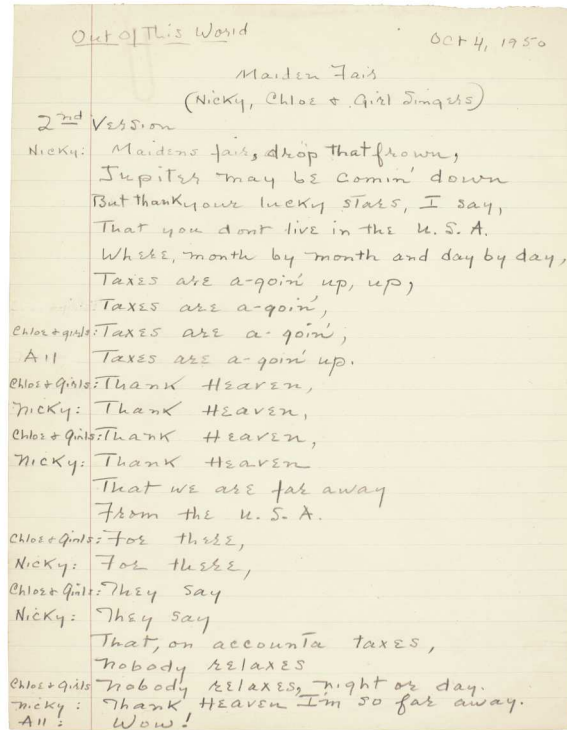 Out Of This World Oct 4, 1950
Maiden Fair
(Nicky, Chloe + Girl Singers)
2nd Version
Nicky: Maidens fair, drop that frown,
Jupiter may be comin' down
But thank your lucky stars, I say,
That you dont live in the U.S.A.
Where, month by month and day by day,
Taxes are a-goin' up, up,
Taxes are a-goin',
Chloe + girls: Taxes are a-goin',
All Taxes are a-goin' up.
Chloe + Girls: Thank Heaven,
Nicky: Thank Heaven,
Chloe + Girls: Thank Heaven,
Nicky: Thank Heaven
That we are far away
From the U.S.A.
Chloe + Girls: For there,
Nicky: For there,
Chloe + Girls: They say
Nicky: They say
That, on accounta taxes,
nobody relaxes
Chloe + Girls nobody relaxes, night or day.
Nicky: Thank Heaven I'm so far away.
All: Wow!